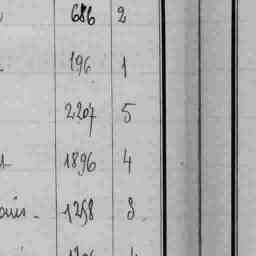 686 2
196 1
2207 5
1896 4
ouis. 1258 8